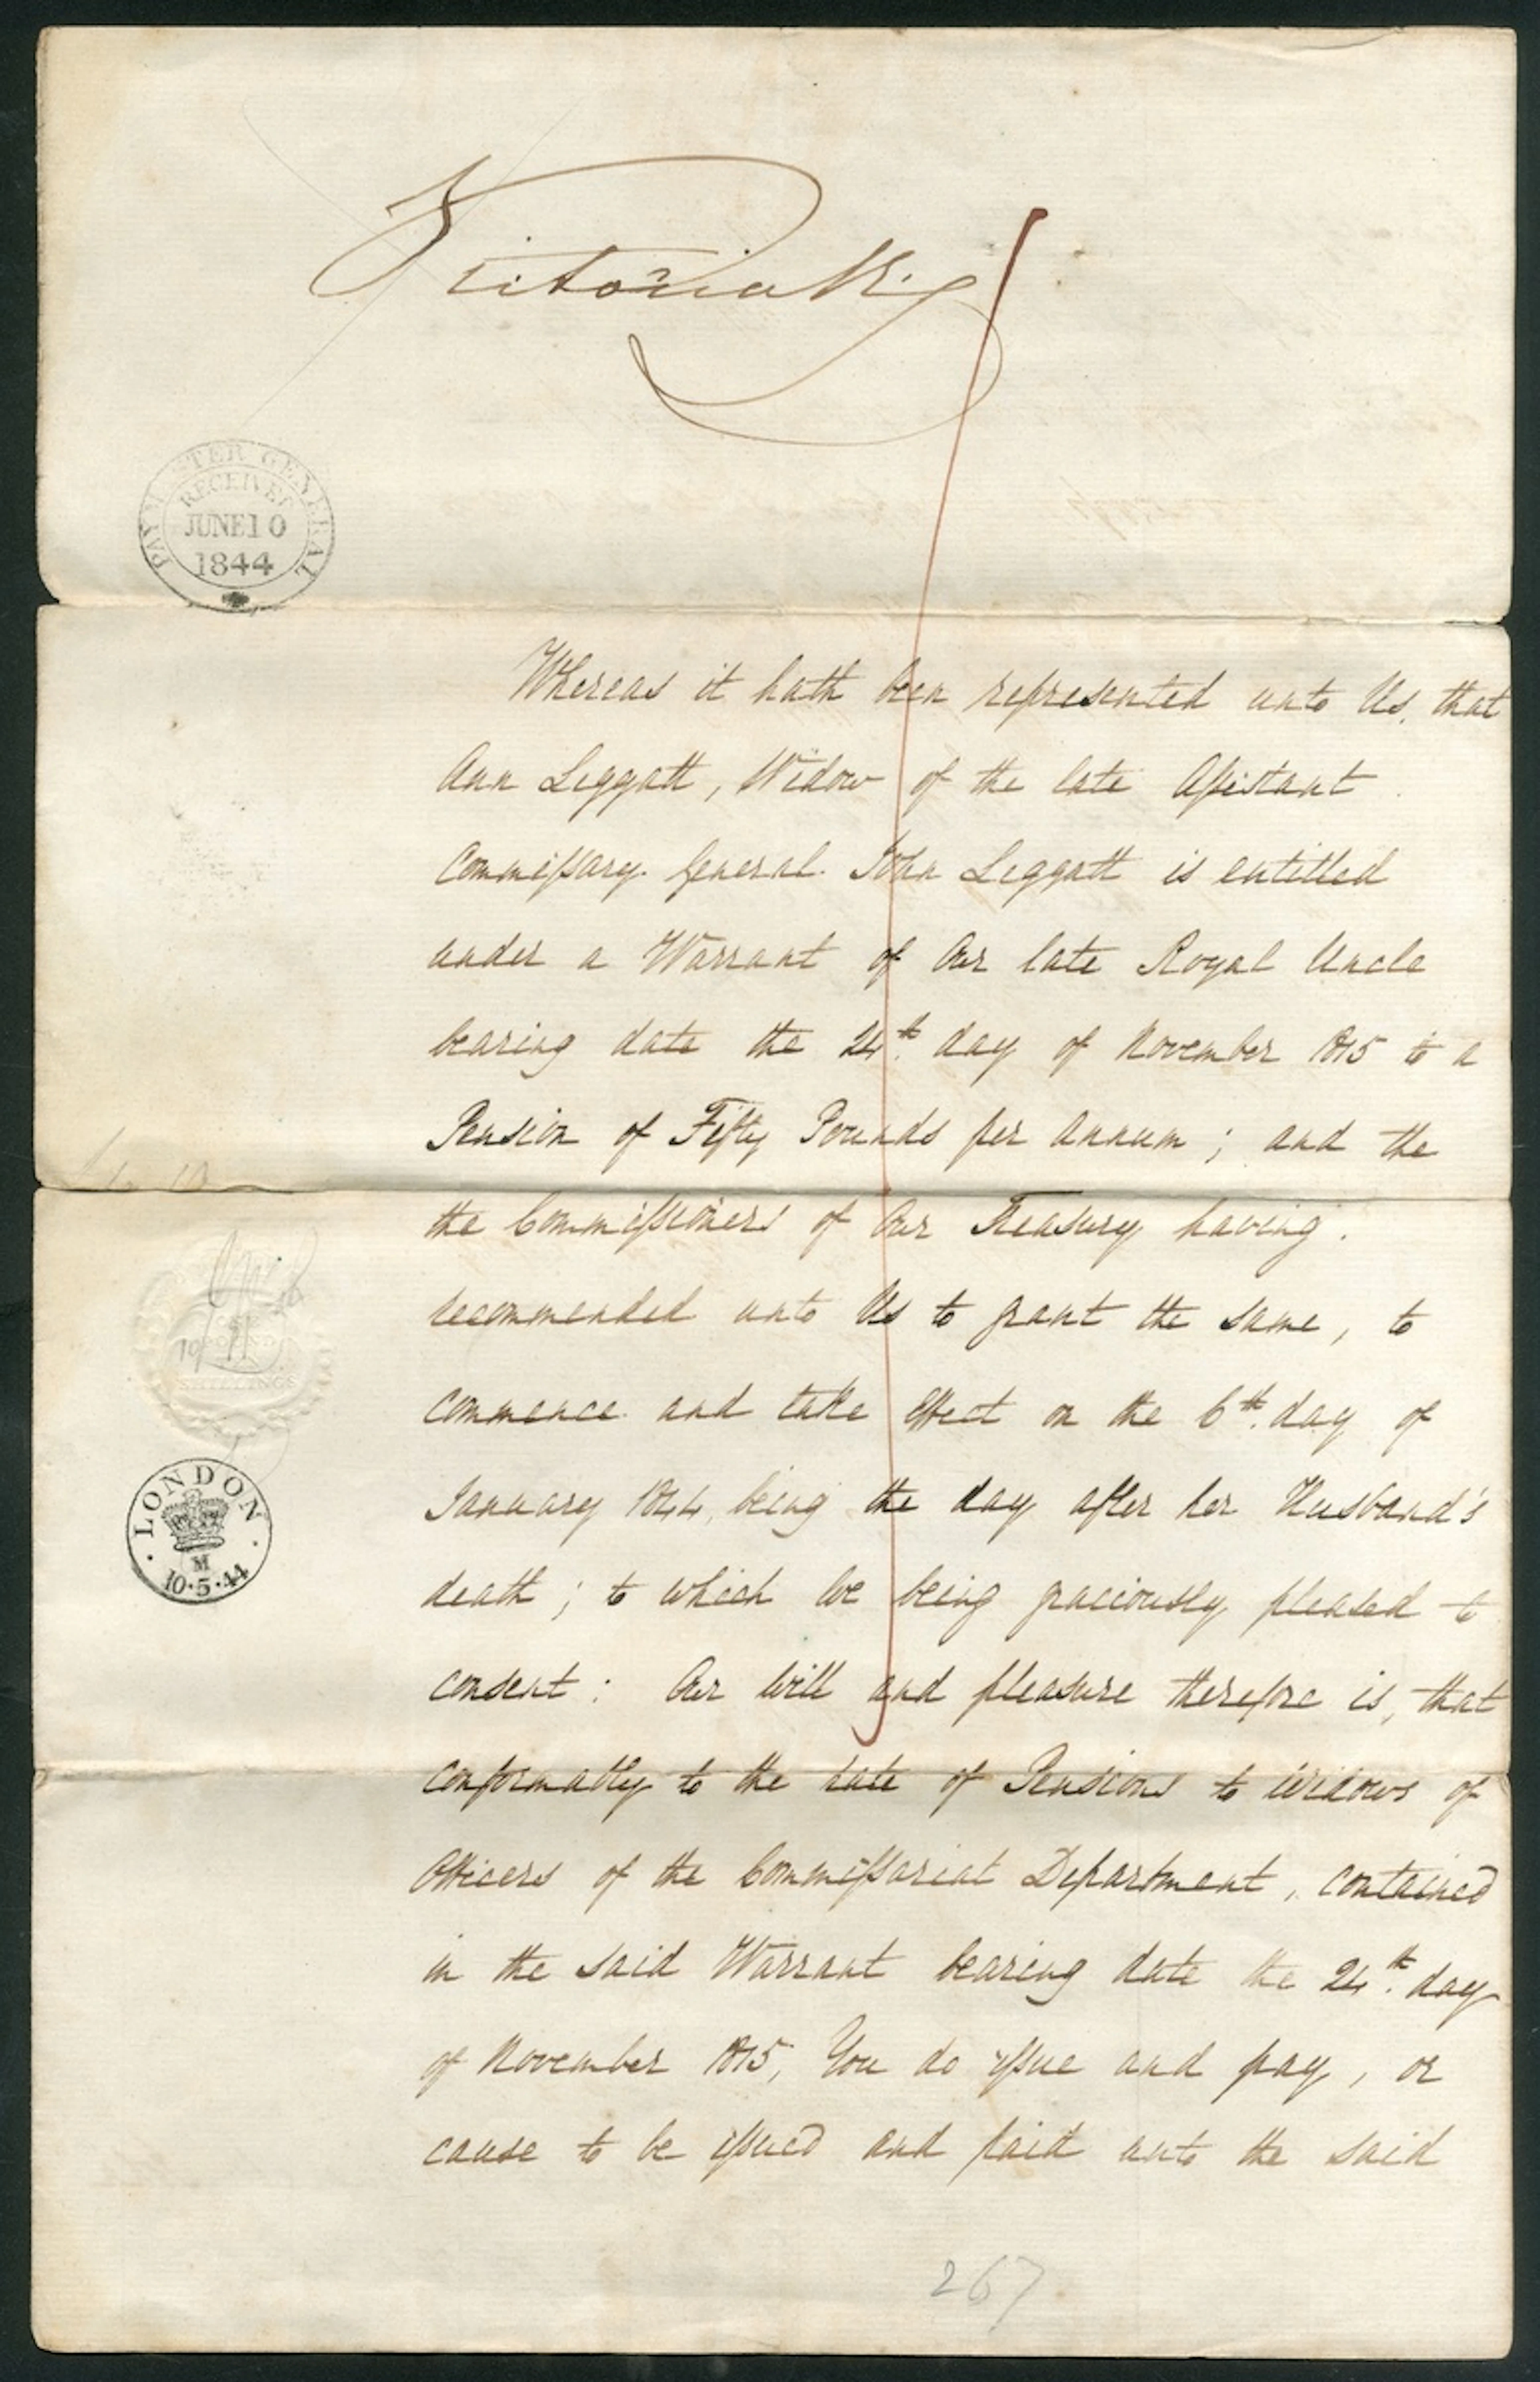 Victoria R.
PAYMASTER GENERAL
RECEIVED
JUNE 10
1844
Whereas it hath been represented unto Us, that
Ann Leggatt, Widow of the late Aſsistant
Commiſsary General John Leggatt is entitled
under a Warrant of Our late Royal Uncle
bearing date the 24th. day of November 1815 to a
Pension of Fifty Pounds per Annum ; and the
the Commiſsioners of Our Treasury having
recommended unto Us to grant the same, to
commence and take effect on the 6th. day of
January 1844, being the day after her Husband's
death ; to which We being graciously pleased to
consent : Our Will and pleasure therefore is, that
conformably to the rate of Pensions to Widows of
Officers of the Commiſsariat Department, contained
in the said Warrant bearing date the 24th. day
of November 1815, You do iſsue and pay, or
cause to be iſsued and paid unto the said
SHILLINGS
LONDON
M
10·5·44
267